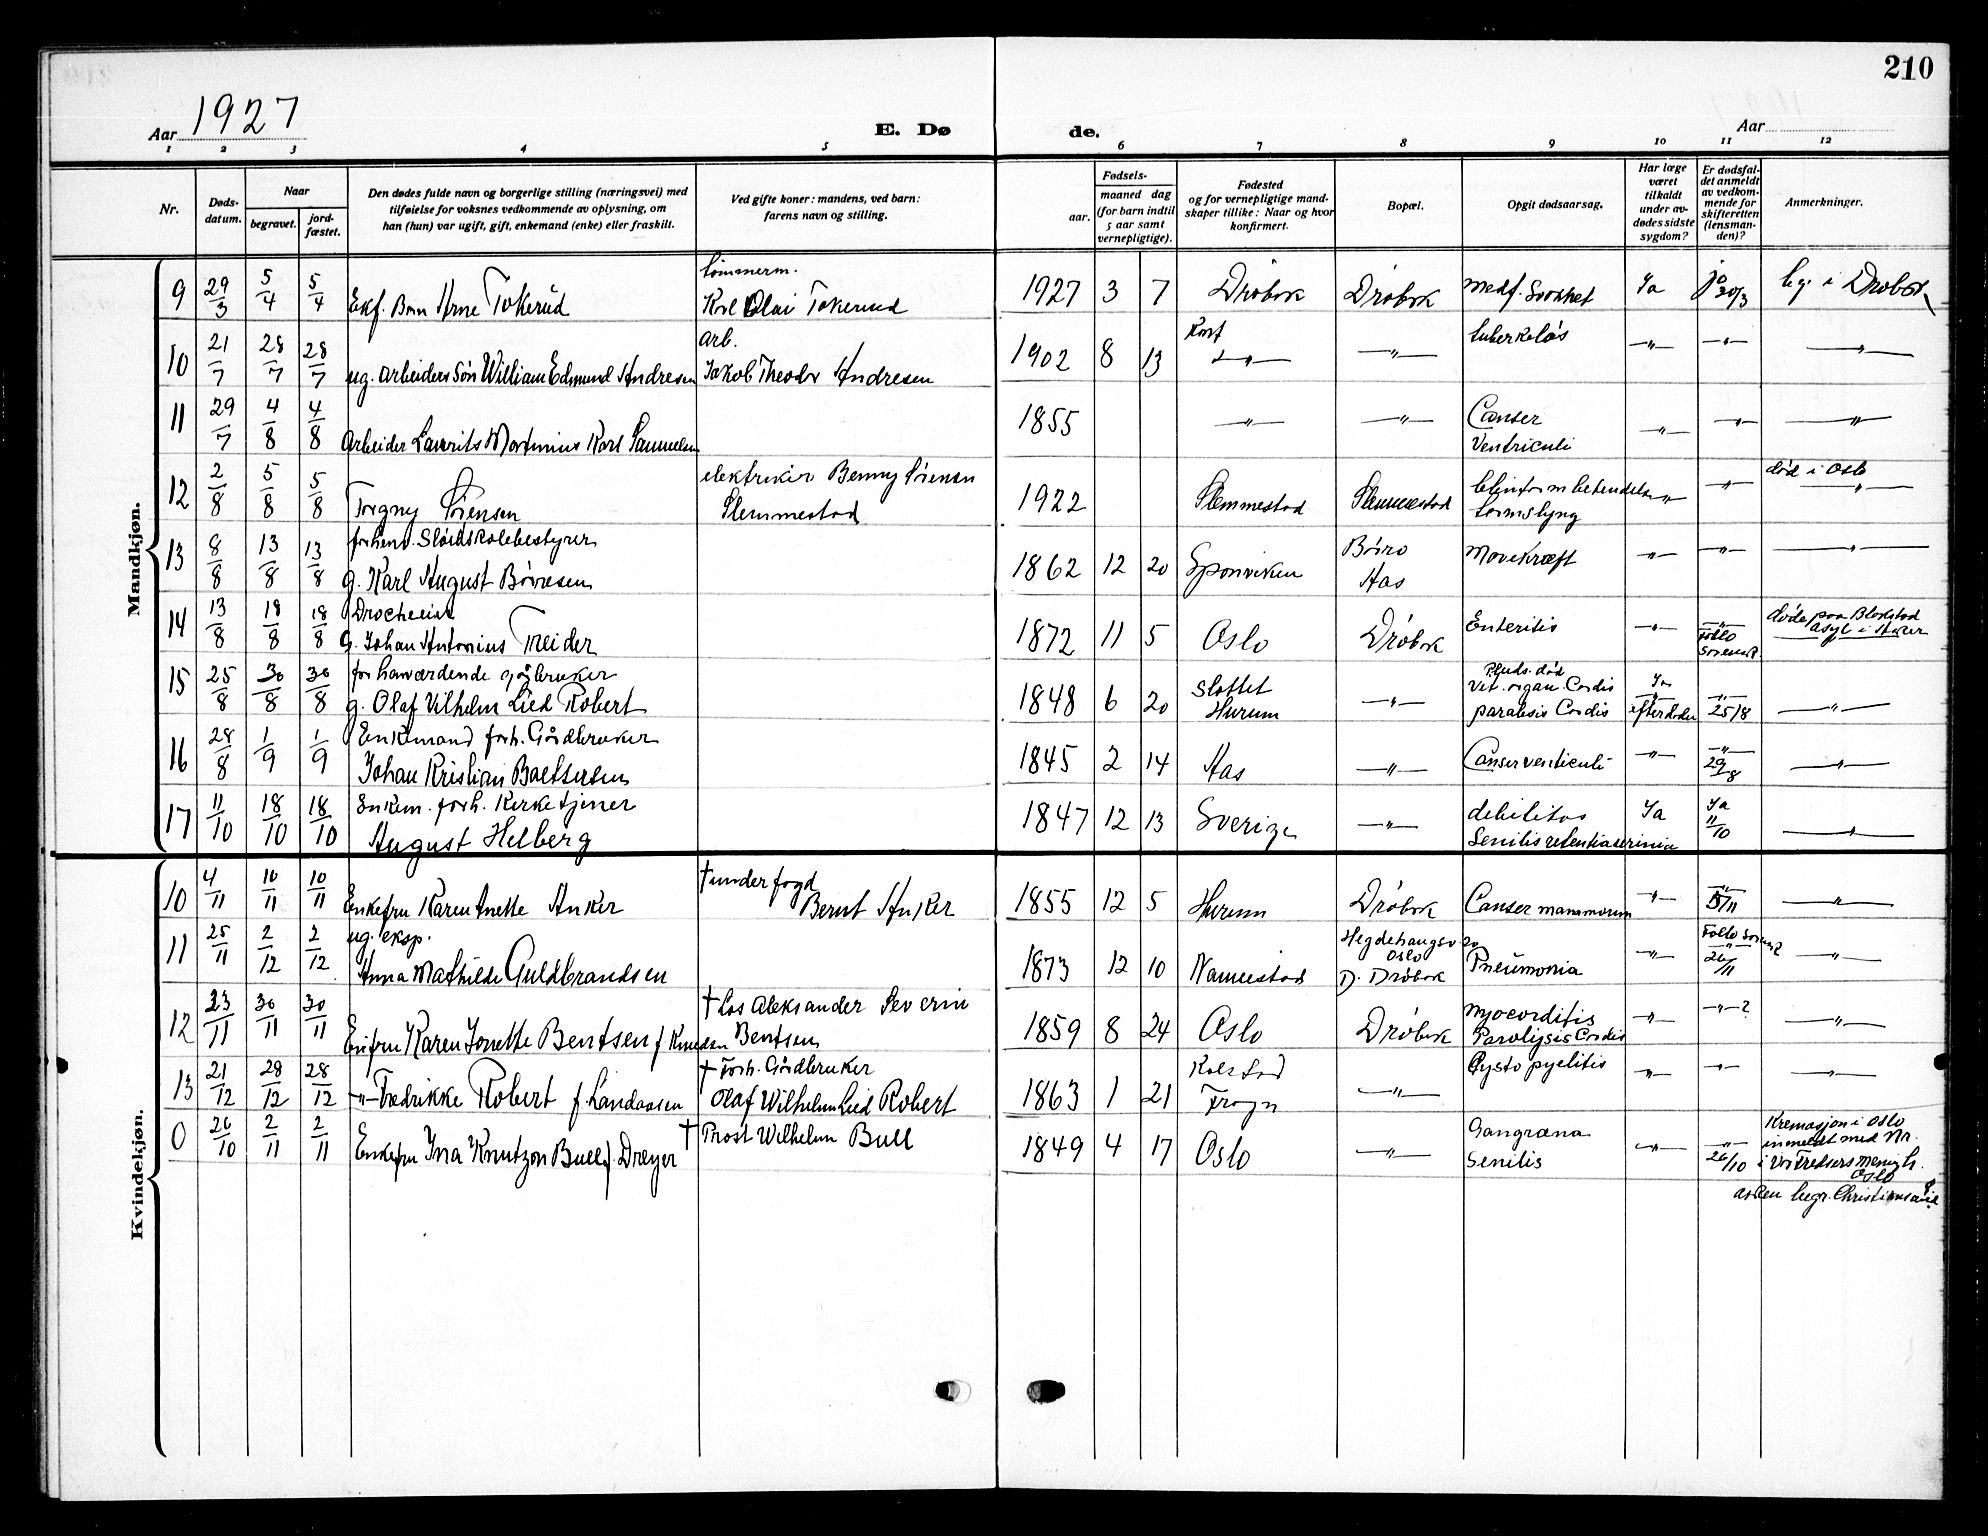 210
Aar 1927
E. Dø
de.
Aar
1 2 3 4 5 6 7 8 9 10 11 12
Nr.
Døds-
datum.
Naar
begravet.
jord-
fæstet.
Den dødes fulde navn og borgerlige stilling (næringsvei) med
tilføielse for voksnes vedkommende av oplysning, om
han (hun) var ugift, gift, enkemand (enke) eller fraskilt.
Ved gifte koner: mandens, ved barn:
farens navn og stilling.
Fødsels-
aar.
maaned dag
(for barn indtil
5 aar samt
vernepligtige).
Fødested
og for vernepligtige mand-
skaper tillike: Naar og hvor
konfirmert.
Bopæl.
Opgit dødsaarsag.
Har læge
været
tilkaldt
under av-
dødes sidste
sygdom?
Er dødsfal-
det anmeldt
av vedkom-
mende for
skifteretten
(lensman-
den)?
Anmerkninger.
Mandkjøn.
9 29/3 5/4 5/4 Ekf. Barn Arne Tokerud
Tømmerm.
Karl Olai Tokerud
1927 3 7 Drøbak Drøbak medf. Svakhet Ja Ja 30/3 beg. i Drøbak
10 21/7 28/7 28/7 ug. arbeider Søn William Edmund Andresen
arb.
Jakob Theodor Andresen
1902 8 13 —"— —"— tuberkeløs —"— —"— —"—
11 29/7 4/8 4/8 Arbeider Laurits Martinius Karl Samuelsen
1855 —"— —"— Canser
Ventriculi —"— —"— —"—
12 2/8 5/8 5/8 Torgny Sørensen
elektriker Benny Sørensen
Slemmestad
1922 Slemmestad Slemmestad blintarmbetendelse
tarmslyng —"— —"— død i Oslo
—"—
13 8/8 13/8 13/8 forhenv. Sløidskolebestyrer
g. Karl August Børresen
1862 12 20 Sponviken
Aas
Mavekræft —"— —"— —"—
14 13/8 18/8 18/8
G. Johan Antonius Treider
1872 11 5 Oslo Drøbak Enteritis —"— —"—
Follo
Sorensk.
døde paa Blakstad
asyl i Asker
15 25/8 30/8 30/8 forhaværdende gårbruker
g. Olaf Vilhelm Lied Robert
1848 6 20 Slottet
Hurum —"— Pluds. død
Vit. organ. Cordis
paralesis Cordis
Ja
efter døden —"—
25/8 —"—
16 28/8 1/9 1/9 Enkemand forh. Gårdbruker
Johan Kristian Baltsersen
1845 2 14 Aas —"— Canser venticuli —"— —"—
29/8 —"—
17 11/10 18/10 18/10 Enkem. forh. Kirketjener
August Helberg
1847 12 13 Sverige —"— debilitas
Senilis retentia urinia Ja Ja
11/10 —"—
Kvindekjøn.
10 4/11 10/11 10/11 Enkefru Karen Anette Anker
† underfogd
Bernt Anker
1855 12 5 Hurum Drøbak Canser mamamorum —"— —"—
5/11 —"—
11 25/11 2/12 2/12 ug. eksp.
Anna Mathilde Guldbrandsen
1873 12 10
Hegdehaugsv. 20
Oslo
D. Drøbak Pneumonia —"— Follo Sorensk?
—"—
26/11 —"—
12 23/11 30/11 30/11 Enkfru Karen Jonette Bentsen f. Knudsen
† Los Aleksander Severin
Bentsen
1859 8 24 Oslo Drøbak Myocorditis
Paralysis Cordis —"— —"—? —"—
13 21/12 28/12 28/12 —"— Fredrikke Robert f. Landaasen
† Forh. Gårdbruker
Olaf Wilhelm Lied Robert
1863 1 21
Frogn —"— Cysto pyelitis —"— —"— —"—
0 26/10 2/11 2/11 Enkefru Ina Knutzon Bull f. Dreyer
† Prost Wilhelm Bull
1849 4 17 Oslo —"— Gangræna
Senilis —"— —"—
26/10
Kremasjon i Oslo
inmeldt med Nr.
i Vor Fredsers menigh.
Oslo
asken begr.